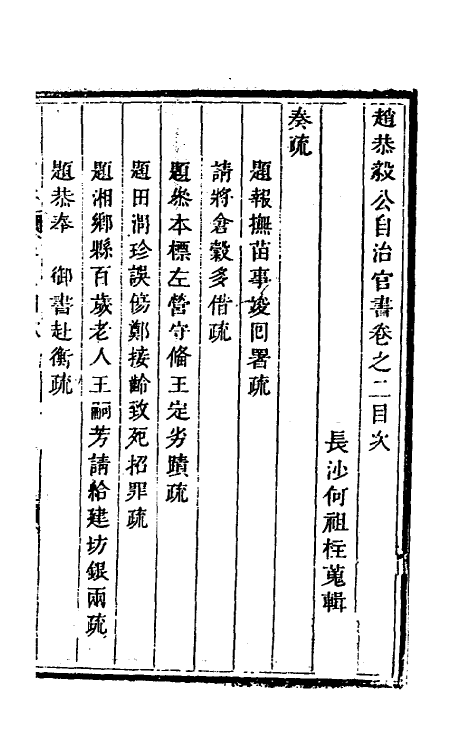 趙恭毅公自治官書卷之二目次
長沙何祖柱蒐輯
奏疏
題報撫苗事竣囘署疏
請將倉穀多借疏
題叅本標左營守備王定劣蹟疏
題田潤珍誤傷鄭接齡致死招罪疏
題湘鄉縣百歲老人王嗣芳請給建坊銀兩疏
題恭奉 御書赴衡疏